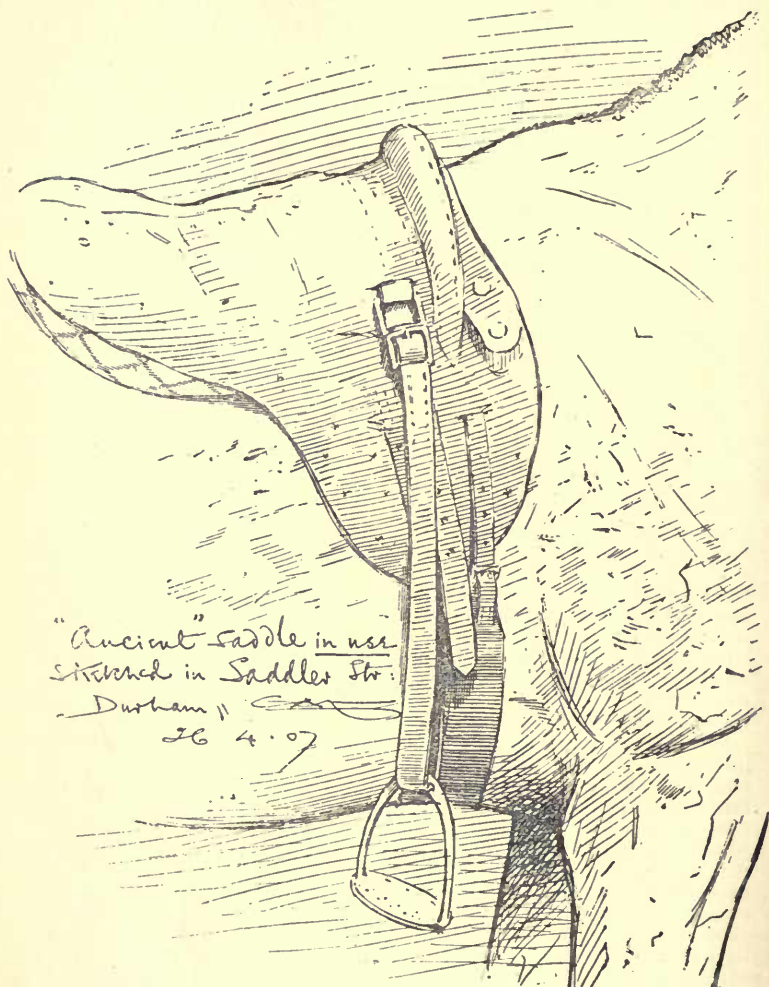 "Ancient" saddle in use
sketched in Saddler Str:
Durham"
26 4.07